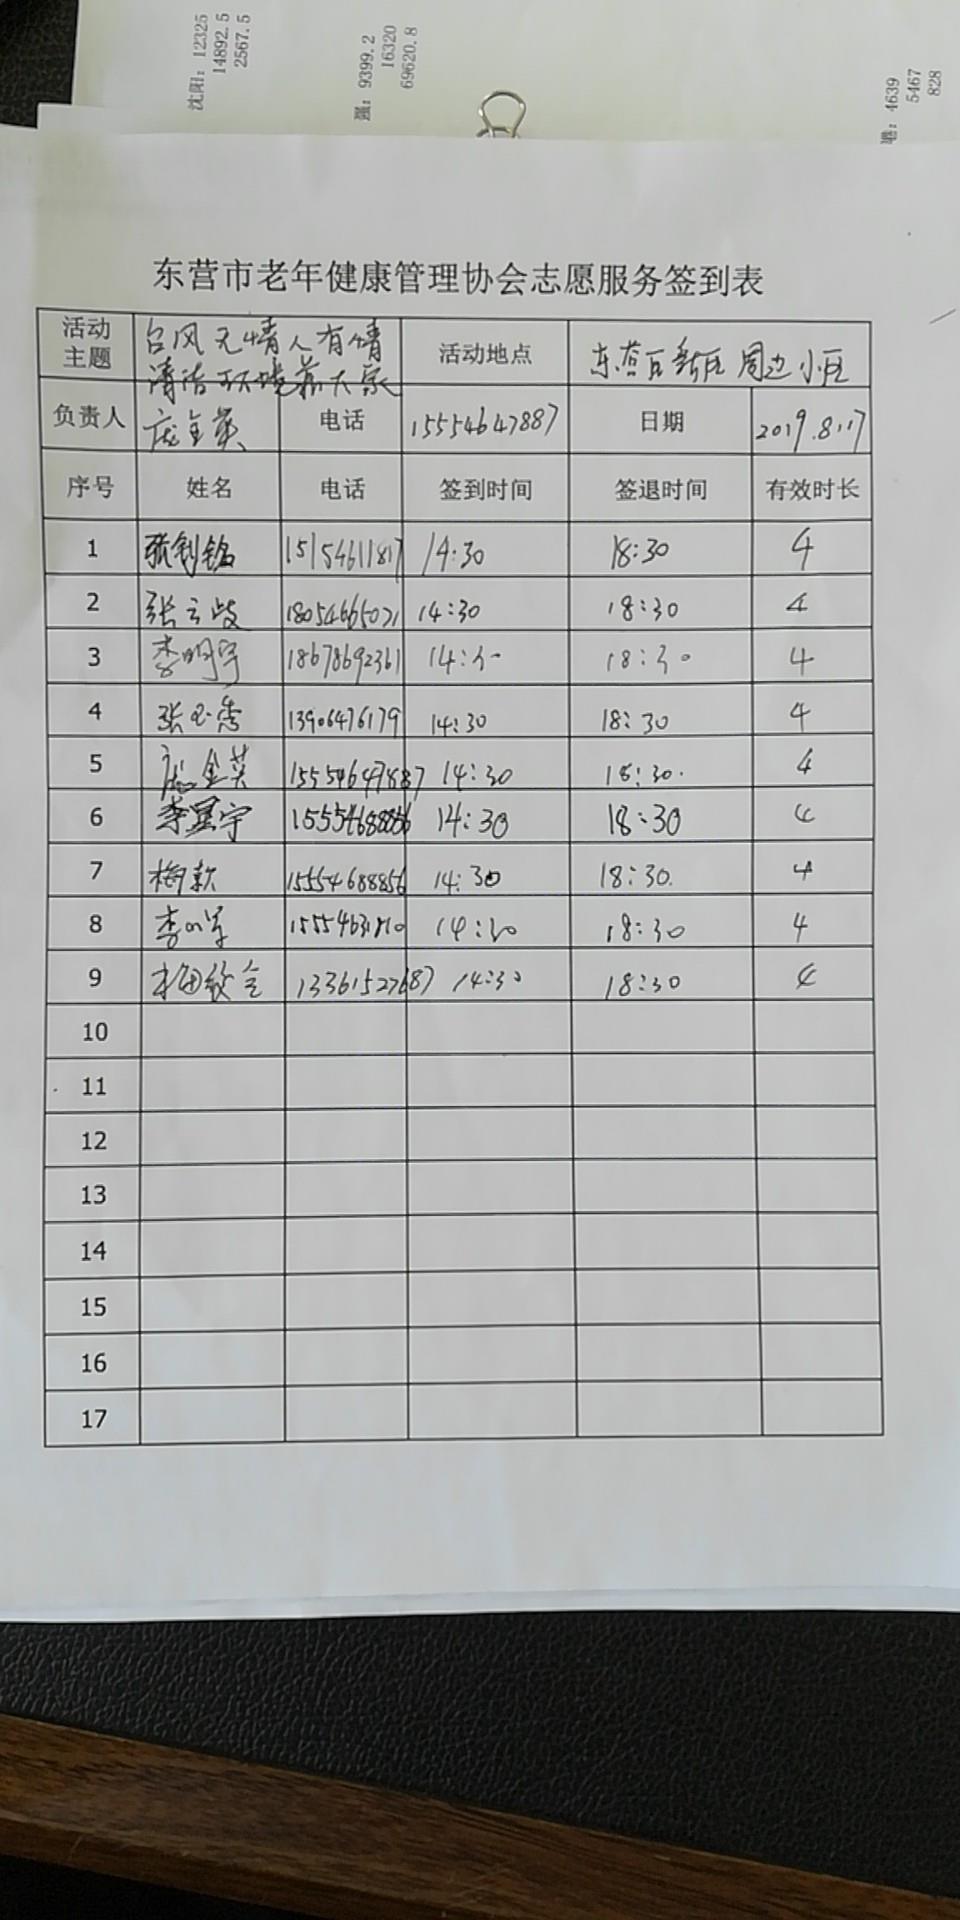 沈阳: 12325
14892.5
2567.5
强: 9399.2
16320
69620.8
港: 4639
5467
828
东营市老年健康管理协会志愿服务签到表
活动主题 台风无情人有情 活动地点 东营区新区周边小区
清洁环境靠大家
负责人 庞金英 电话 15554647887 日期 2019.8.17
序号 姓名 电话 签到时间 签退时间 有效时长
1 15154611817 14:30 18:30 4
2 张云岐 18054665021 14:30 18:30 4
3 李明宇 18678692361 14:30 18:30 4
4 张玉香 13906476179 14:30 18:30 4
5 庞金英 15554647887 14:30 18:30. 4
6 李昱宇 15554688856 14:30 18:30 4
7 梅歆 15554688856 14:30 18:30. 4
8 14:30 18:30 4
9 13361527687 14:30 18:30 4
10
11
12
13
14
15
16
17